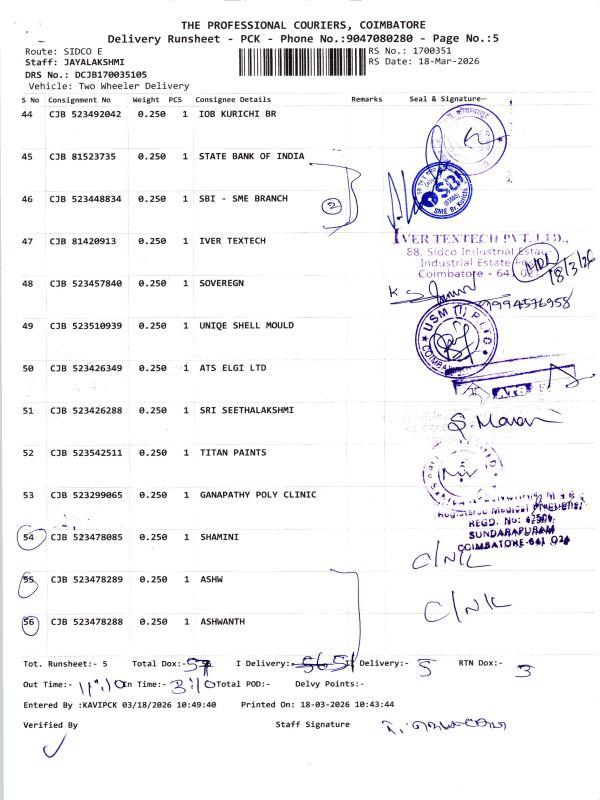 THE PROFESSIONAL COURIERS, COIMBATORE
Delivery Runsheet - PCK - Phone No.:9047080280 - Page No.:5
Route: SIDCO E
RS No.: 1700351
Staff: JAYALAKSHMI
RS Date: 18-Mar-2026
DRS No.: DCJB170035105
Vehicle: Two Wheeler Delivery
S No Consignment No Weight PCS Consignee Details Remarks Seal & Signature
44 CJB 523492042 0.250 1 IOB KURICHI BR
45 CJB 81523735 0.250 1 STATE BANK OF INDIA
SBI
SME Br. Kurichi
46 CJB 523448834 0.250 1 SBI - SME BRANCH
2
47 CJB 81420913 0.250 1 IVER TEXTECH
IVER TEXTECH PVT. LTD.,
88, Sidco Industrial Estate
Industrial Estate
Coimbatore - 641 021
18/3/26
48 CJB 523457840 0.250 1 SOVEREGN
9994576958
49 CJB 523510939 0.250 1 UNIQE SHELL MOULD
USM (I) P LTD
50 CJB 523426349 0.250 1 ATS ELGI LTD
ATS
51 CJB 523426288 0.250 1 SRI SEETHALAKSHMI
52 CJB 523542511 0.250 1 TITAN PAINTS
53 CJB 523299065 0.250 1 GANAPATHY POLY CLINIC
Registered Medical
REGD. No: 42506
SUNDARAPURAM
COIMBATORE-641 024
54 CJB 523478085 0.250 1 SHAMINI
C/NK
55 CJB 523478289 0.250 1 ASHW
C/NK
56 CJB 523478288 0.250 1 ASHWANTH
Tot. Runsheet:- 5 Total Dox:- 57 I Delivery:- 56 51 II Delivery:- 5 RTN Dox:- 3
Out Time:- 11:10 In Time:- 3:10 Total POD:- Delvy Points:-
Entered By :KAVIPCK 03/18/2026 10:49:40 Printed On: 18-03-2026 10:43:44
Verified By Staff Signature